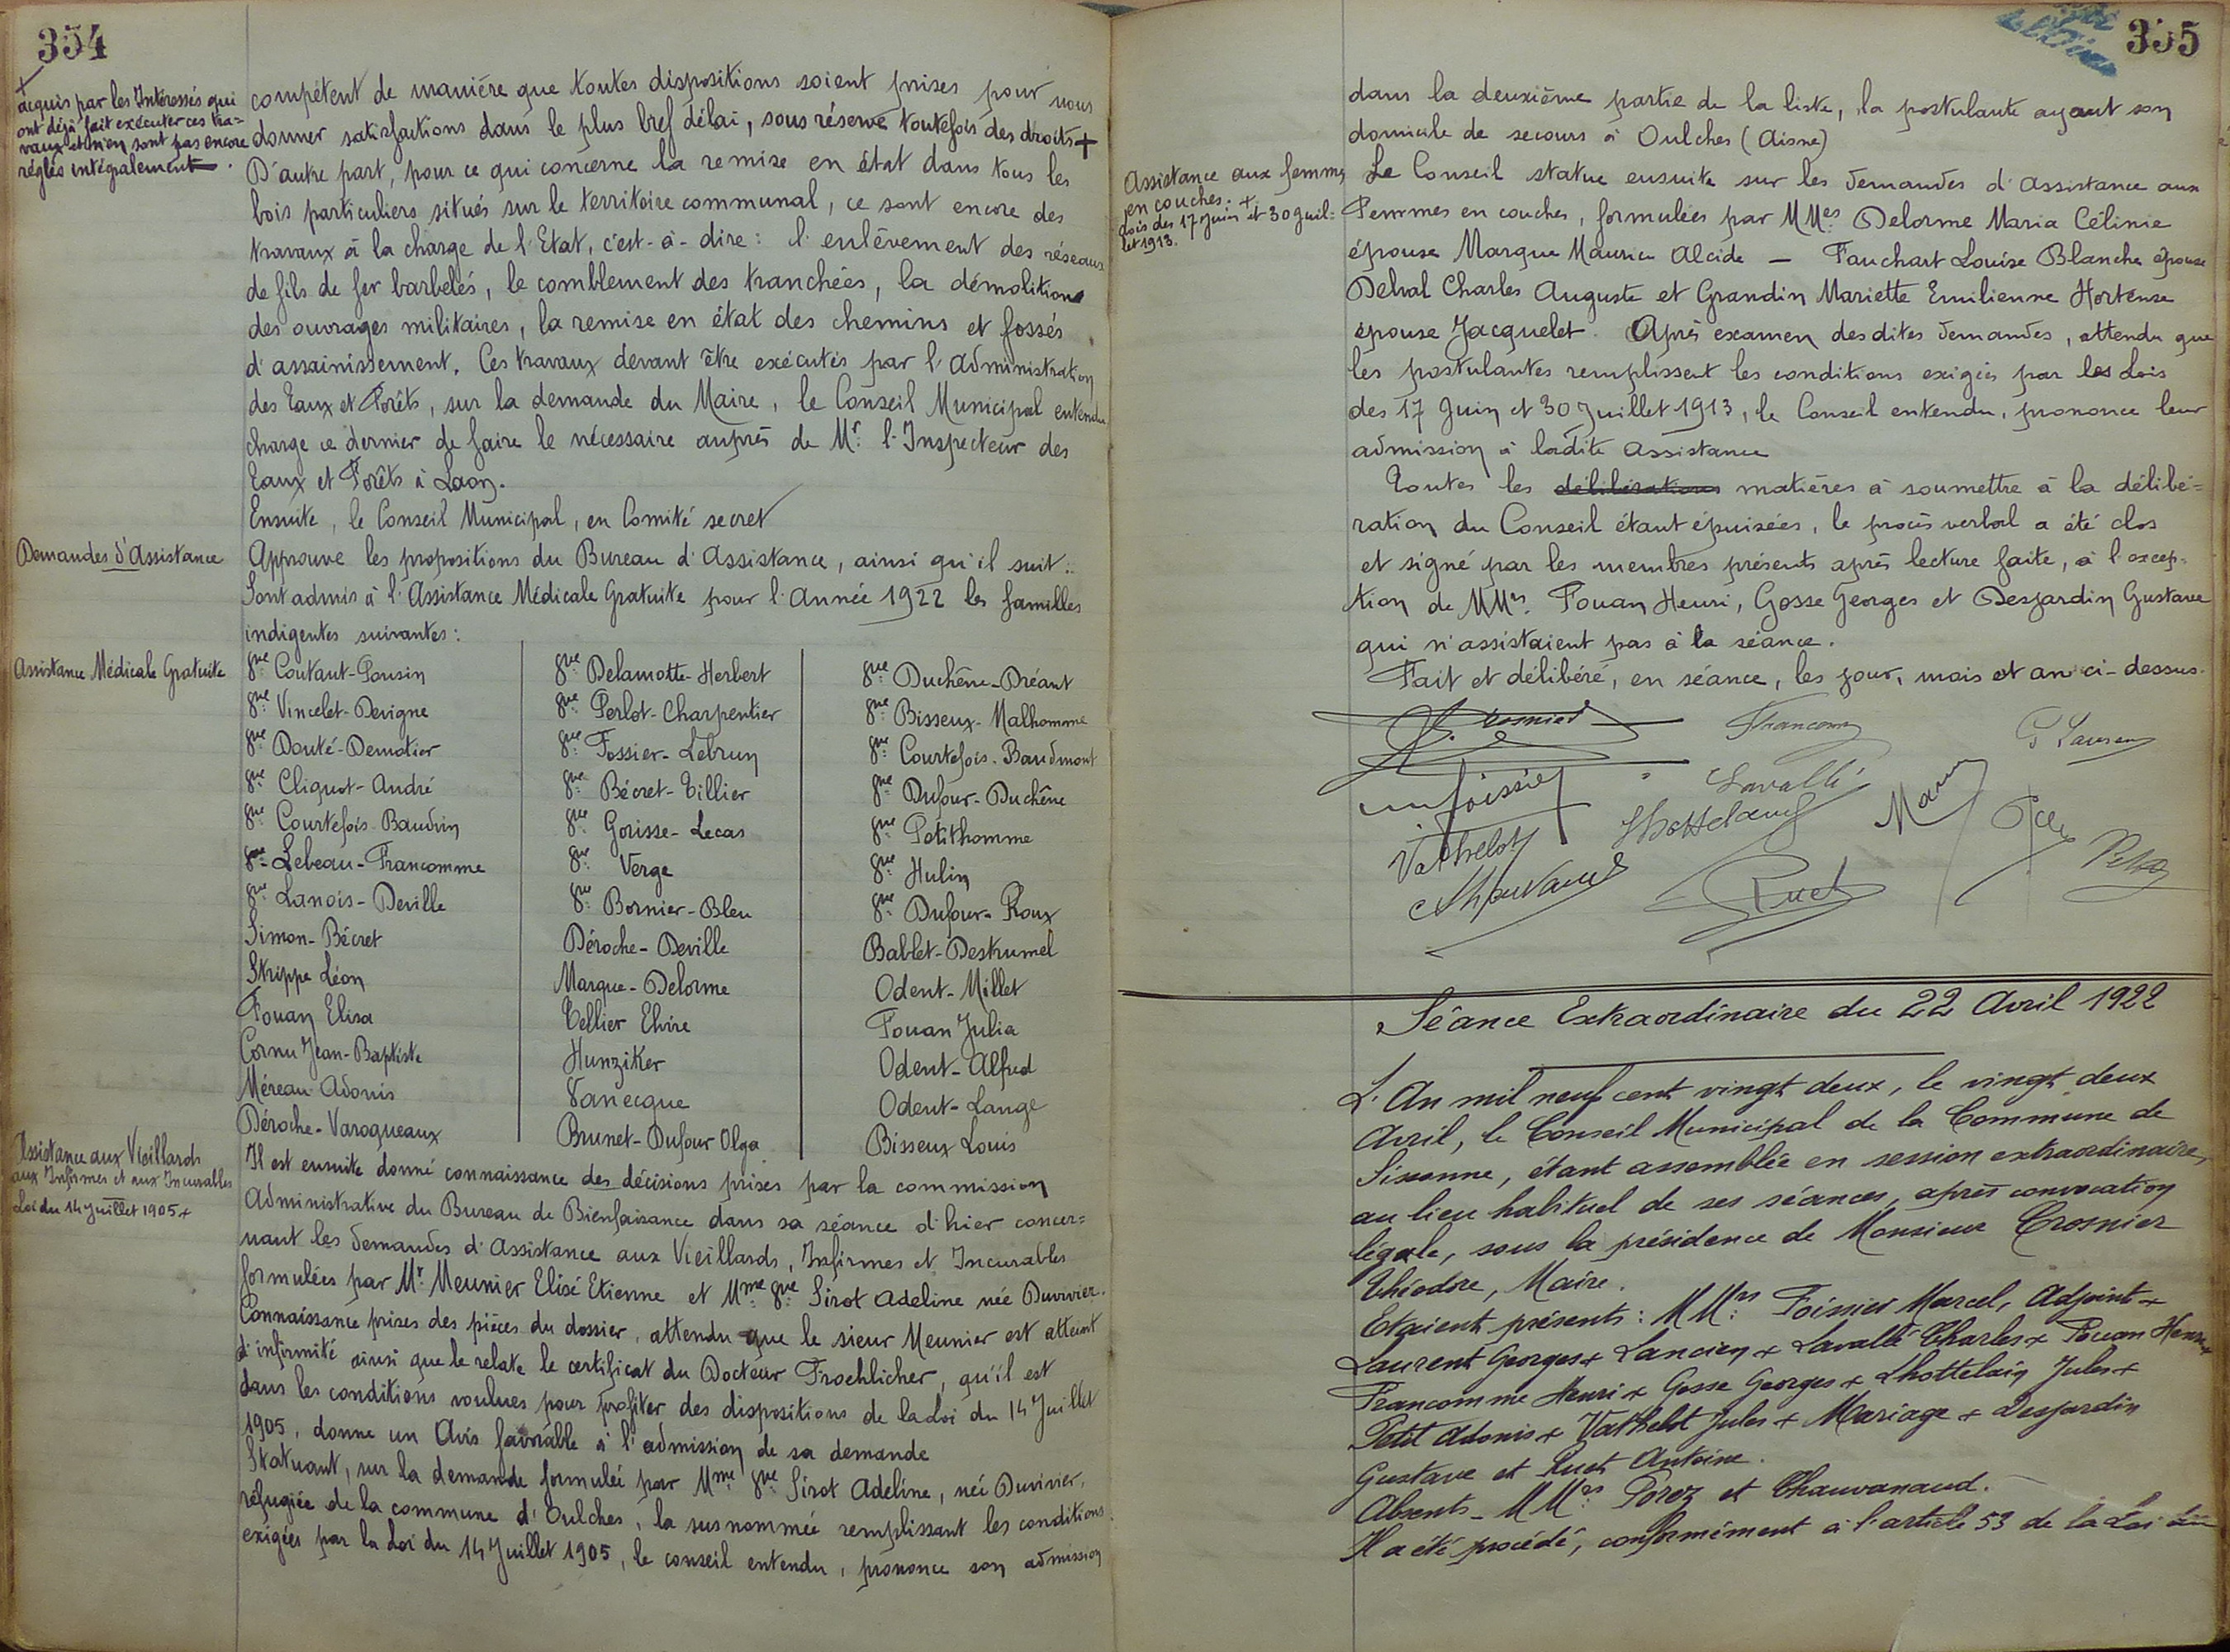 354
+
acquis par les Intéressés qui
ont déjà fait exécuter ces tra=
vaux et n'en sont pas encore
réglés intégralement.
compétent de manière que toutes dispositions soient prises pour nous
donner satisfactions dans le plus bref délai, sous réserve toutefois des droits +
D'autre part, pour ce qui concerne la remise en état dans tous les
bois particuliers situés sur le territoire communal, ce sont encore des
travaux à la charge de l'Etat, c'est-à-dire: l'enlèvement des réseaux
de fils de fer barbelés, le comblement des tranchées, la démolition
des ouvrages militaires, la remise en état des chemins et fossés
d'assainissement. Ces travaux devant être exécutés par l'Administration
des Eaux et Forêts, sur la demande du Maire, le Conseil Municipal entendu
charge ce dernier de faire le nécessaire auprès de Mr. l'Inspecteur des
Eaux et Forêts à Laon.
Ensuite, le Conseil Municipal, en Comité secret
Demandes d'Assistance
Approuve les propositions du Bureau d'Assistance, ainsi qu'il suit:
Sont admis à l'Assistance Médicale Gratuite pour l'Année 1922 les familles
indigentes suivantes:
Assistance Médicale Gratuite
Vve Coutant-Pousin Vve Delamotte-Herbert Vve Duchêne-Dréant
Vve Vincelet-Devigne Vve Perlot-Charpentier Vve Bisseux-Malhomme
Vve Douté-Demotier Vve Fossier-Lebrun Vve Courtefois-Baudmont
Vve Cliquot-André Vve Bécret-Tillier Vve Dufour-Duchêne
Vve Courtefois-Baudrin Vve Gorisse-Lecas Vve Petithomme
Vve Lebeau-Francomme Vve Verge Vve Hulin
Vve Lanois-Deville Vve Bornier-Bleu Vve Dufour-Roux
Simon-Bécret Déroche-Deville Bablet-Destrumel
Strippe Léon Marque-Delorme Odent-Millet
Fouan Elisa Tellier Elvire Fouan Julia
Cornu Jean-Baptiste Hunziker Odent-Alfred
Méreau Adonis Vanecque Odent-Lange
Déroche-Varoqueaux Brunet-Dufour Olga Bisseux Louis
Assistance aux Vieillards
aux Infirmes et aux Incurables
Loi du 14 Juillet 1905 +
Il est ensuite donné connaissance des décisions prises par la commission
Administrative du Bureau de Bienfaisance dans sa séance d'hier concer=
nant les demandes d'Assistance aux Vieillards, Infirmes et Incurables
formulées par Mr. Meunier Elisé Etienne et Mme Vve Sirot Adeline née Duvivier.
Connaissance prises des pièces du dossier, attendu que le sieur Meunier est atteint
d'infirmité ainsi que le relate le certificat du Docteur Froehlicher, qu'il est
dans les conditions voulues pour profiter des dispositions de la Loi du 14 Juillet
1905, donne un Avis favorable à l'admission de sa demande
Statuant, sur la demande formulée par Mme Vve Sirot Adeline, née Duvivier,
réfugiée de la commune d'Oulches, la susnommée remplissant les conditions
exigées par la Loi du 14 Juillet 1905, le conseil entendu, prononce son admission
355
dans la deuxième partie de la liste, la postulante ayant son
domicile de secours à Oulches (Aisne)
Assistance aux femmes
en couches. +
Lois des 17 Juin et 30 Juil=
let 1913.
Le Conseil statue ensuite sur les demandes d'assistance aux
Femmes en couches, formulées par MMes Delorme Maria Célinie
épouse Marque Maurice Alcide — Fauchart Louise Blanche épouse
Delval Charles Auguste et Grandin Mariette Emilienne Hortense
épouse Jacquelet. Après examen desdites demandes, attendu que
les postulantes remplissent les conditions exigées par les Lois
des 17 Juin et 30 Juillet 1913, le Conseil entendu, prononce leur
admission à ladite Assistance
Toutes les délibérations matières à soumettre à la délibé=
ration du Conseil étant épuisées, le procès verbal a été clos
et signé par les membres présents après lecture faite, à l'excep=
tion de MMrs. Fouan Henri, Gosse Georges et Desjardin Gustave
qui n'assistaient pas à la séance.
Fait et délibéré, en séance, les jour, mois et an ci-dessus.
Crosnier Francomme G Laurent
Foissier Lavallé
Lhottelain
Vathelot Petit
Chauvanaud Ruet
Séance Extraordinaire du 22 Avril 1922
L'An mil neuf cent vingt deux, le vingt deux
Avril, le Conseil Municipal de la Commune de
Sissonne, étant assemblée en session extraordinaire,
au lieu habituel de ses séances, après convocation
légale, sous la présidence de Monsieur Crosnier
Théodore, Maire.
Etaient présents: MMrs. Foissier Marcel, Adjoint +
Laurent Georges + Lancien + Lavallé Charles + Fouan Henri +
Francomme Henri + Gosse Georges + Lhottelain Jules +
Petit Adonis + Vathelot Jules + Mariage + Desjardin
Gustave et Ruet Antoine.
Absents - MMrs. Poroz et Chauvanaud.
Il a été procédé, conformément à l'article 53 de la Loi du